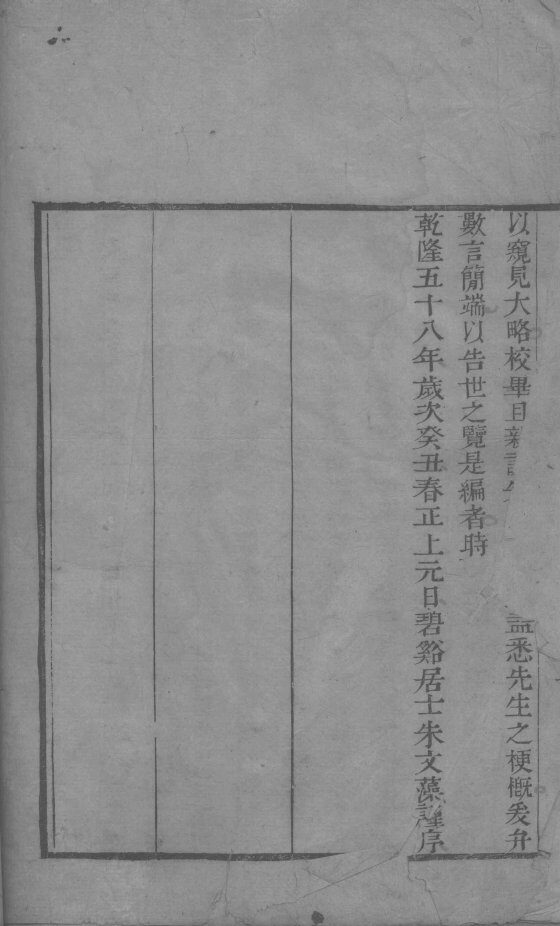 以窺見大略校畢日新 悉先生之梗概爰弁
數言簡端以告世之覽是編者時
乾隆五十八年歲次癸丑春正上元日碧谿居士朱文藻謹序